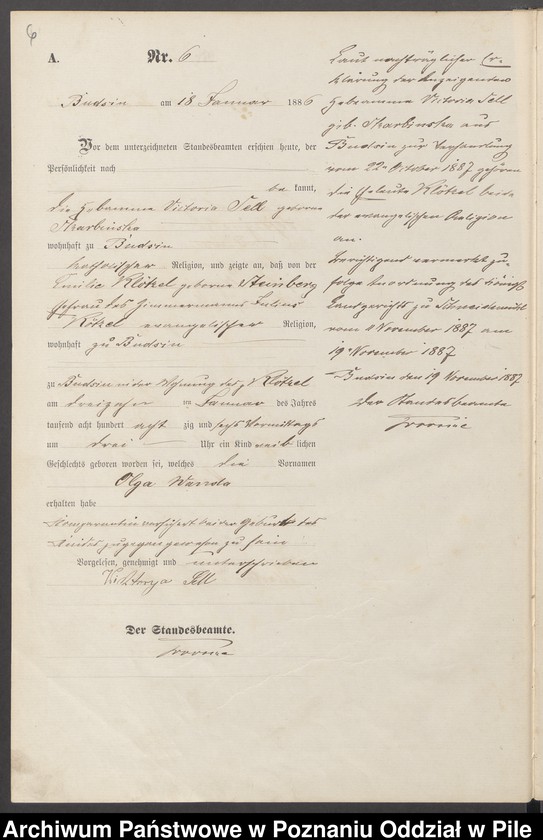 6
A. Nr. 6
Budsin am 18 Januar 1886
Vor dem unterzeichneten Standesbeamten erschien heute, der
Persönlichkeit nach
be kannt,
die Hebamme Victoria Tell geborene
Skarbinska
wohnhaft zu Budsin
katholischer Religion, und zeigte an, daß von der
Emilie Klötzel geborene Steinberg
Ehefrau des Zimmermanns Julius
Klötzel evangelischer Religion,
wohnhaft zu Budsin
zu Budsin in der Wohnung des Klötzel
am dreizehn ten Januar des Jahres
tausend acht hundert acht zig und sechs Vormittags
um drei Uhr ein Kind weib lichen
Geschlechts geboren worden sei, welches die Vornamen
Olga Wanda
erhalten habe
Komparentin versichert bei der Geburt des
Kindes zugegen gewesen zu sein
Vorgelesen, genehmigt und unterschrieben
Wiktorya Tell
Der Standesbeamte.
Laut nachträglicher Er-
klärung der Anzeigenden
Hebamme Victoria Tell
geb. Skarbinska aus
Budsin zur Verhandlung
vom 22 October 1887 gehören
die Eheleute Klötzel beide
der evangelischen Religion
an.
Berichtigend vermerkt zu-
folge Anordnung des Königl.
Landgerichts zu Schneidemühl
vom November 1887 am
19 November 1887
Budsin den 19 November 1887
Der Standesbeamte
Archiwum Państwowe w Poznaniu Oddział w Pile